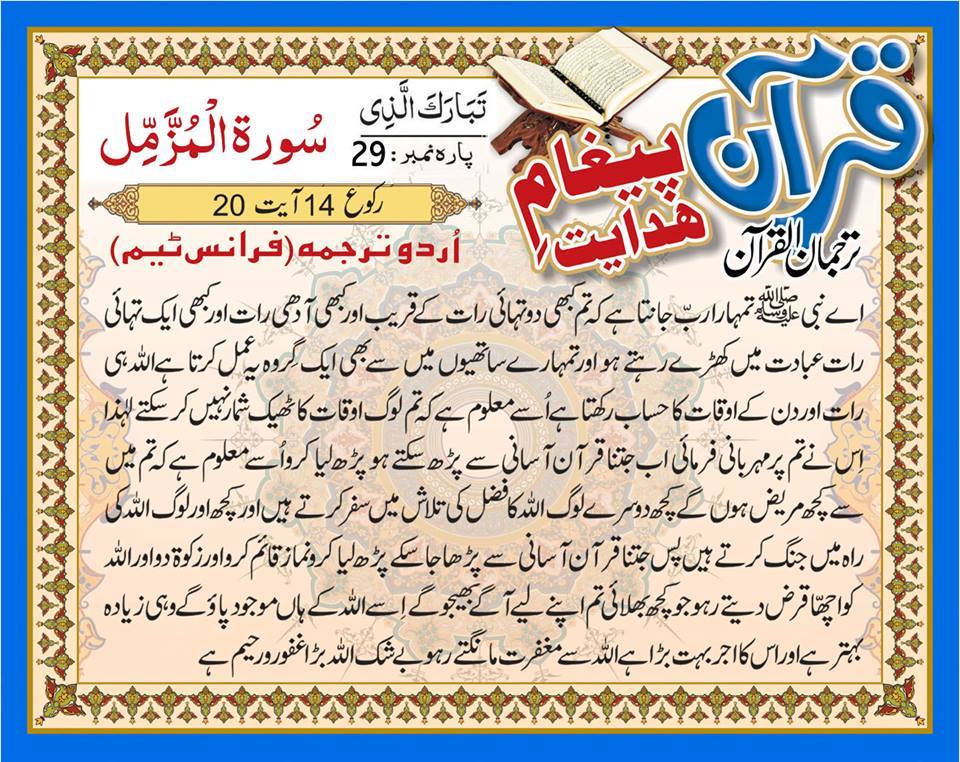 قرآن
پیغامِ
ھدایت
ترجمان القرآن
تَبَارَكَ الَّذِی
پارہ نمبر: 29
سُورة الْمُزَّمِّل
رکوع 14 آیت 20
اُردو ترجمہ (فرانس ٹیم)
اے نبی ﷺ تمہارا ربّ جانتا ہے کہ تم کبھی دو تہائی رات کے قریب اور کبھی آدھی رات اور کبھی ایک تہائی
رات عبادت میں کھڑے رہتے ہو اور تمہارے ساتھیوں میں سے بھی ایک گروہ یہ عمل کرتا ہے اللہ ہی
رات اور دن کے اوقات کا حساب رکھتا ہے اُسے معلوم ہے کہ تم لوگ اوقات کا ٹھیک شمار نہیں کر سکتے لہٰذا
اِس نے تم پر مہربانی فرمائی اب جتنا قرآن آسانی سے پڑھ سکتے ہو پڑھ لیا کرو اُسے معلوم ہے کہ تم میں
سے کچھ مریض ہوں گے کچھ دوسرے لوگ اللہ کا فضل کی تلاش میں سفر کرتے ہیں اور کچھ اور لوگ اللہ کی
راہ میں جنگ کرتے ہیں پس جتنا قرآن آسانی سے پڑھا جا سکے پڑھ لیا کرو نماز قائم کرو اور زکوة دو اور اللہ
کو اچھّا قرض دیتے رہو جو کچھ بھلائی تم اپنے لیے آگے بھیجو گے اسے اللہ کے ہاں موجود پاؤ گے وہی زیادہ
بہتر ہے اور اس کا اجر بہت بڑا ہے اللہ سے مغفرت مانگتے رہو بے شک اللہ بڑا غفور و رحیم ہے